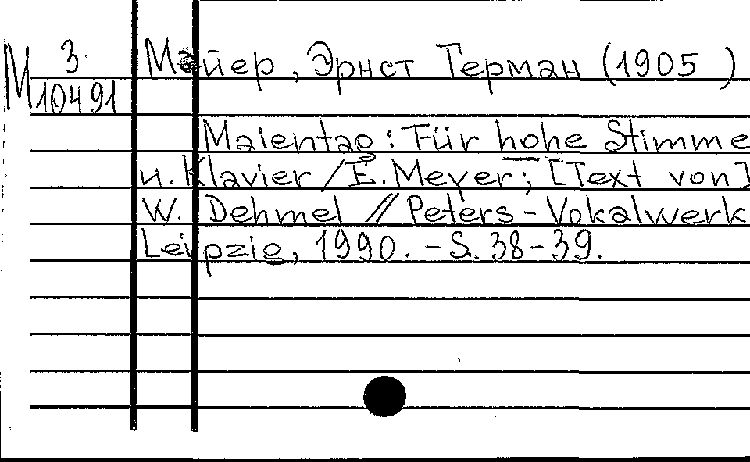 3.
M 10491
Майер, Эрнст Герман (1905 )
Maientag: Für hohe Stimme
u. Klavier / E. Meyer; [Text von]
W. Dehmel // Peters-Vokalwerk
Leipzig, 1990. - S. 38-39.